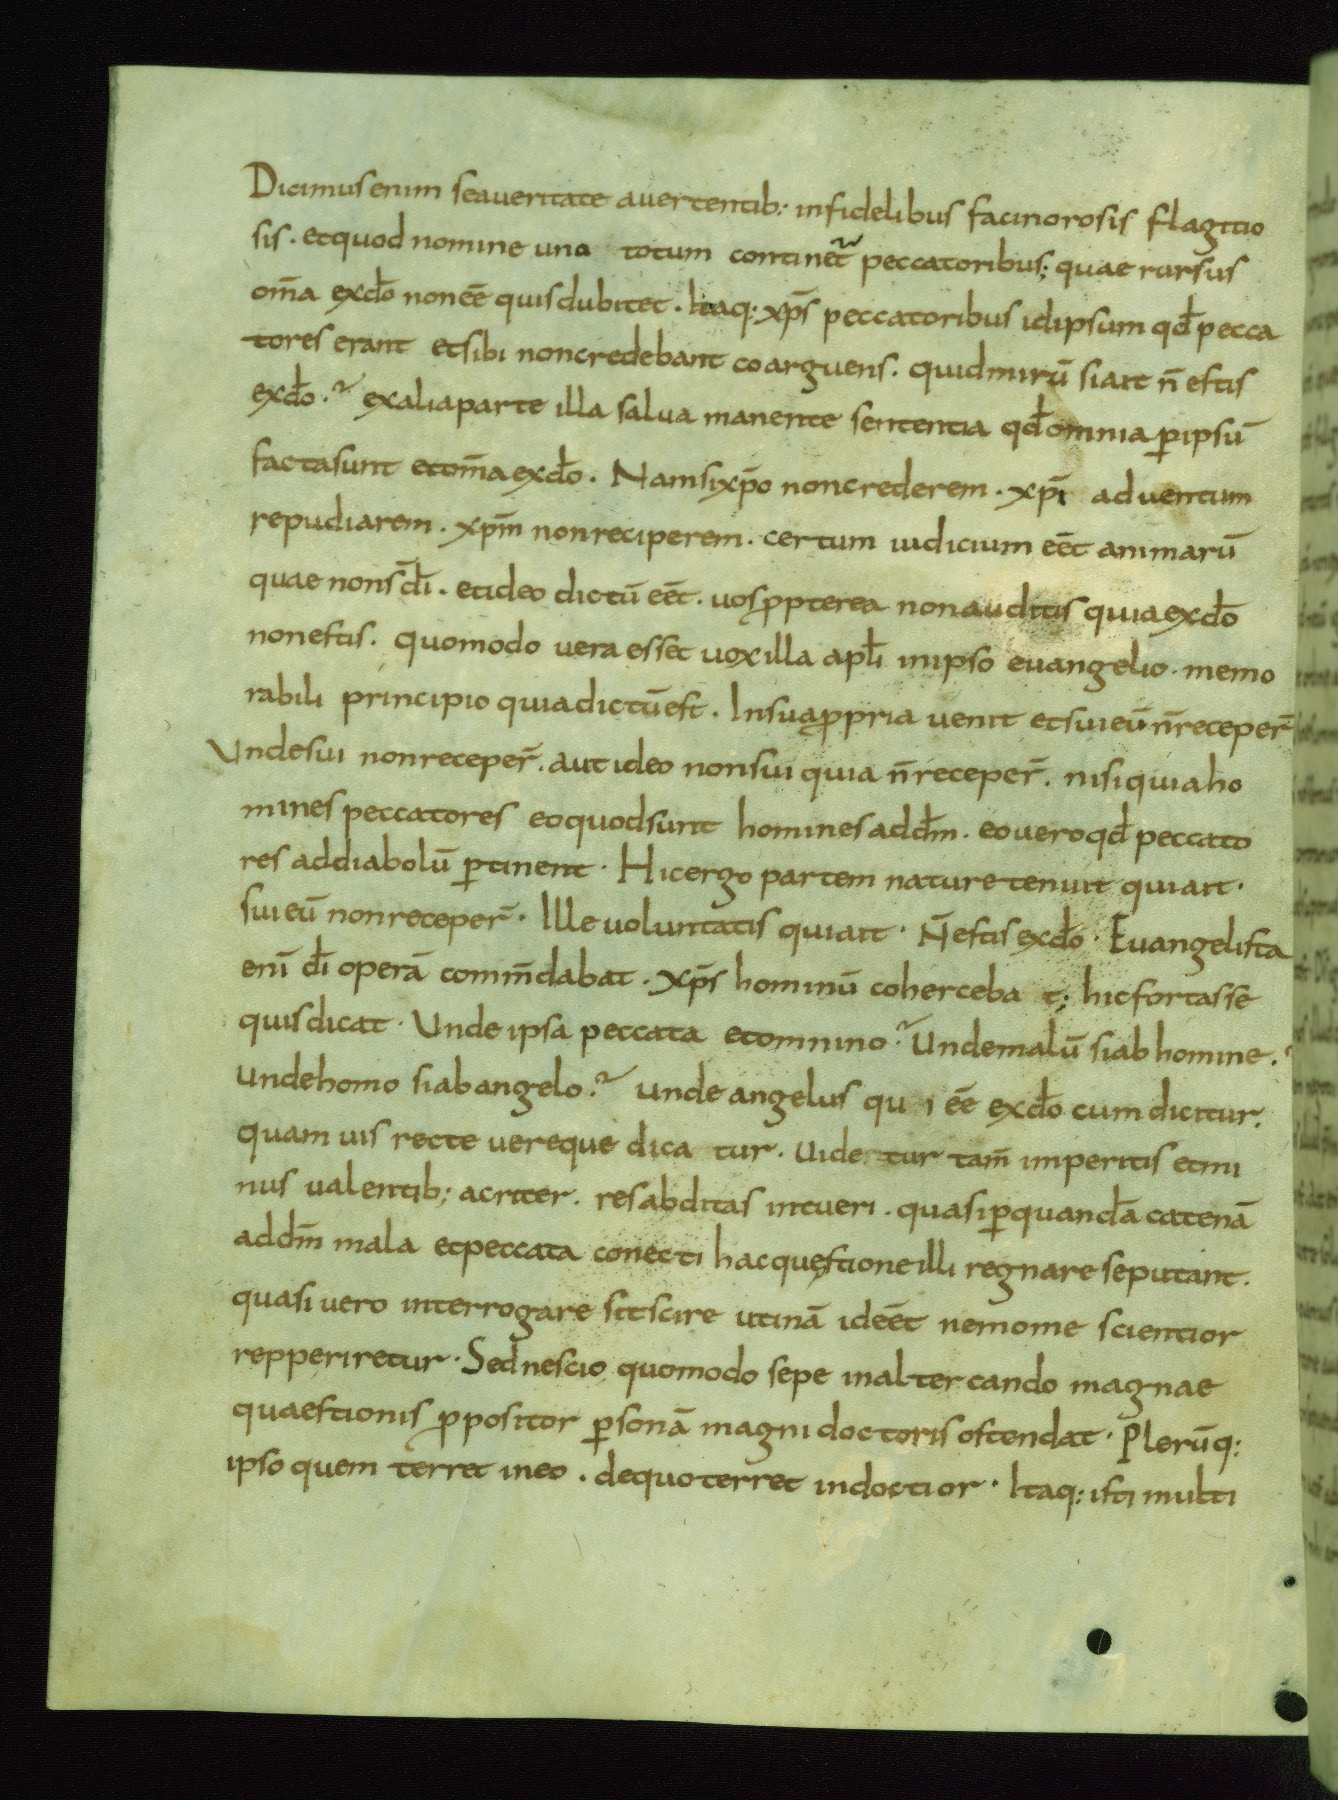 Dicimus enim se a ueritate auertentib: infidelibus facinorosis flagitio
sis . et quod nomine uno totum continet᷑ peccatoribus; quae rursus
om̅a ex do̅ non ee̅ quis dubitet . Itaq: xp̅s peccatoribus id ipsum qd̅ pecca
tores erant et sibi non credebant coarguens . quid miru̅ si ait n̅ estis
ex do̅ .᷑ ex alia parte illa salua manente sententia qd̅ omnia p̅ ipsu̅
facta sunt et om̅a ex do̅ . Nam si xp̅o non crederem . xp̅i aduentum
repudiarem . xp̅m non reciperem . certum iudicium ee̅t animaru̅
quae non s̅ di̅ . et ideo dictu̅ ee̅t . uos ꝓpterea non auditis quia ex do̅
non estis . quomodo uera esset uox illa apl̅i in ipso euangelio . memo
rabili principio quia dictu̅ est . In sua ꝓpria uenit et sui eu̅ n̅ receper̅
Unde sui non receper̅ . aut ideo non sui quia n̅ receper̅ . nisi quia ho
mines peccatores eo quod sunt homines ad dm̅ . eo uero qd̅ peccato
res ad diabolu̅ p̅tinent . Hic ergo partem nature tenuit qui ait .
sui eu̅ non receper̅ . Ille uoluntatis qui ait . N̅ estis ex do̅ . Euangelista
eni̅ di̅ opera̅ comm̅dabat . xp̅s hominu̅ coherceba t; hic fortasse
quis dicat . Unde ipsa peccata et omnino .᷑ Unde malu̅ si ab homine .᷑
unde homo si ab angelo .᷑ unde angelus qu i ee̅ ex do̅ cum dicitur .
quam uis recte uereque dica tur . Uide tur tam̅ imperitis et mi
nus ualentib; acriter . res abditas intueri . quasi p̅ quanda̅ catena̅
ad dm̅ mala et peccata conecti hac quęstione illi regnare se putant .
quasi uero interrogare sit scire utina̅ id ee̅t nemo me scientior
repperiretur . Sed nescio quomodo sepe in altercando magnae
quaestionis ꝓpositor p̅sona̅ magni doctoris ostendat . Pleru̅q:
ipso quem terret in eo . de quo terret indoctior . Itaq: isti multi